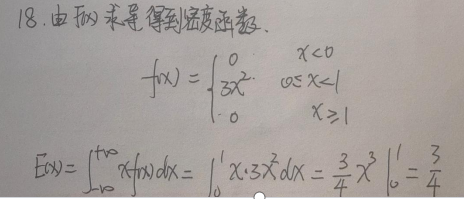 18. 由F(x)求导得到密度函数.
f(x) = { 0 x<0
3x² 0≤x<1
0 x≥1
E(x) = ∫_{-∞}^{+∞} x f(x) dx = ∫_0^1 x·3x² dx = 3/4 x³ |_0^1 = 3/4